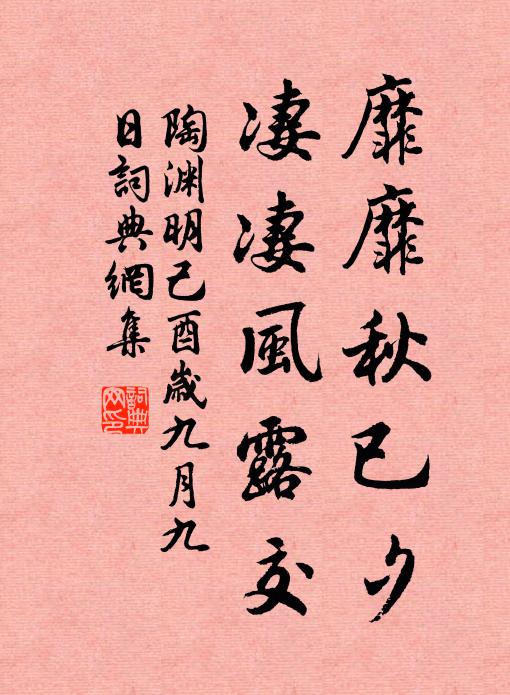 靡靡秋已夕
淒淒風露交
陶淵明己酉歲九月九
日詞典網集
詞典
网印